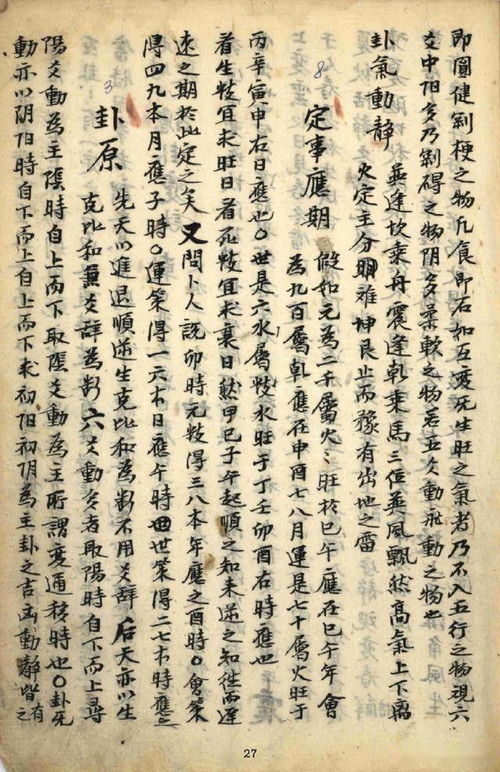 即圓健剛梗之物凡食即石如互変死生旺之氣者乃不入五行之物現六
爻中阳多乃剛碍之物阴多柔軟之物若五爻動飛動之物也
卦氣動靜
巽逢坎乗舟震逢乾乗馬三位巽風飄然高氣上下离
火定主分明难坤艮止而豫有出地之雷
8
定事應期
假如元為二千屬火〻旺於巳午二應在巳午年會
為九百屬乾應在申酉七八月運是七十屬火旺于
丙辛寅申右日應也〇世是六水屬水旺于丁壬卯酉右時應也
看生宜求旺日看死宜求衰日然甲巳子午起順之知未逆之知徃而遅
速之期於此定之矣
又問卜人説卯時元得三八本年應之酉時〇會策
得四九本月應子時〇運策得一六本日應午時世策得二七本時應
3
卦原
先天以進退順逆生克比和為断不用爻辞后天亦以生
克比和兼爻辞為断六爻動多者取陽時自下而上尋
陽爻動為主陰時自上而下取陰爻動為主所謂変通移時也〇卦死
動亦以阴阳時自下而上自上而下求初阳初阴為主卦之吉凶動靜皆有之
27